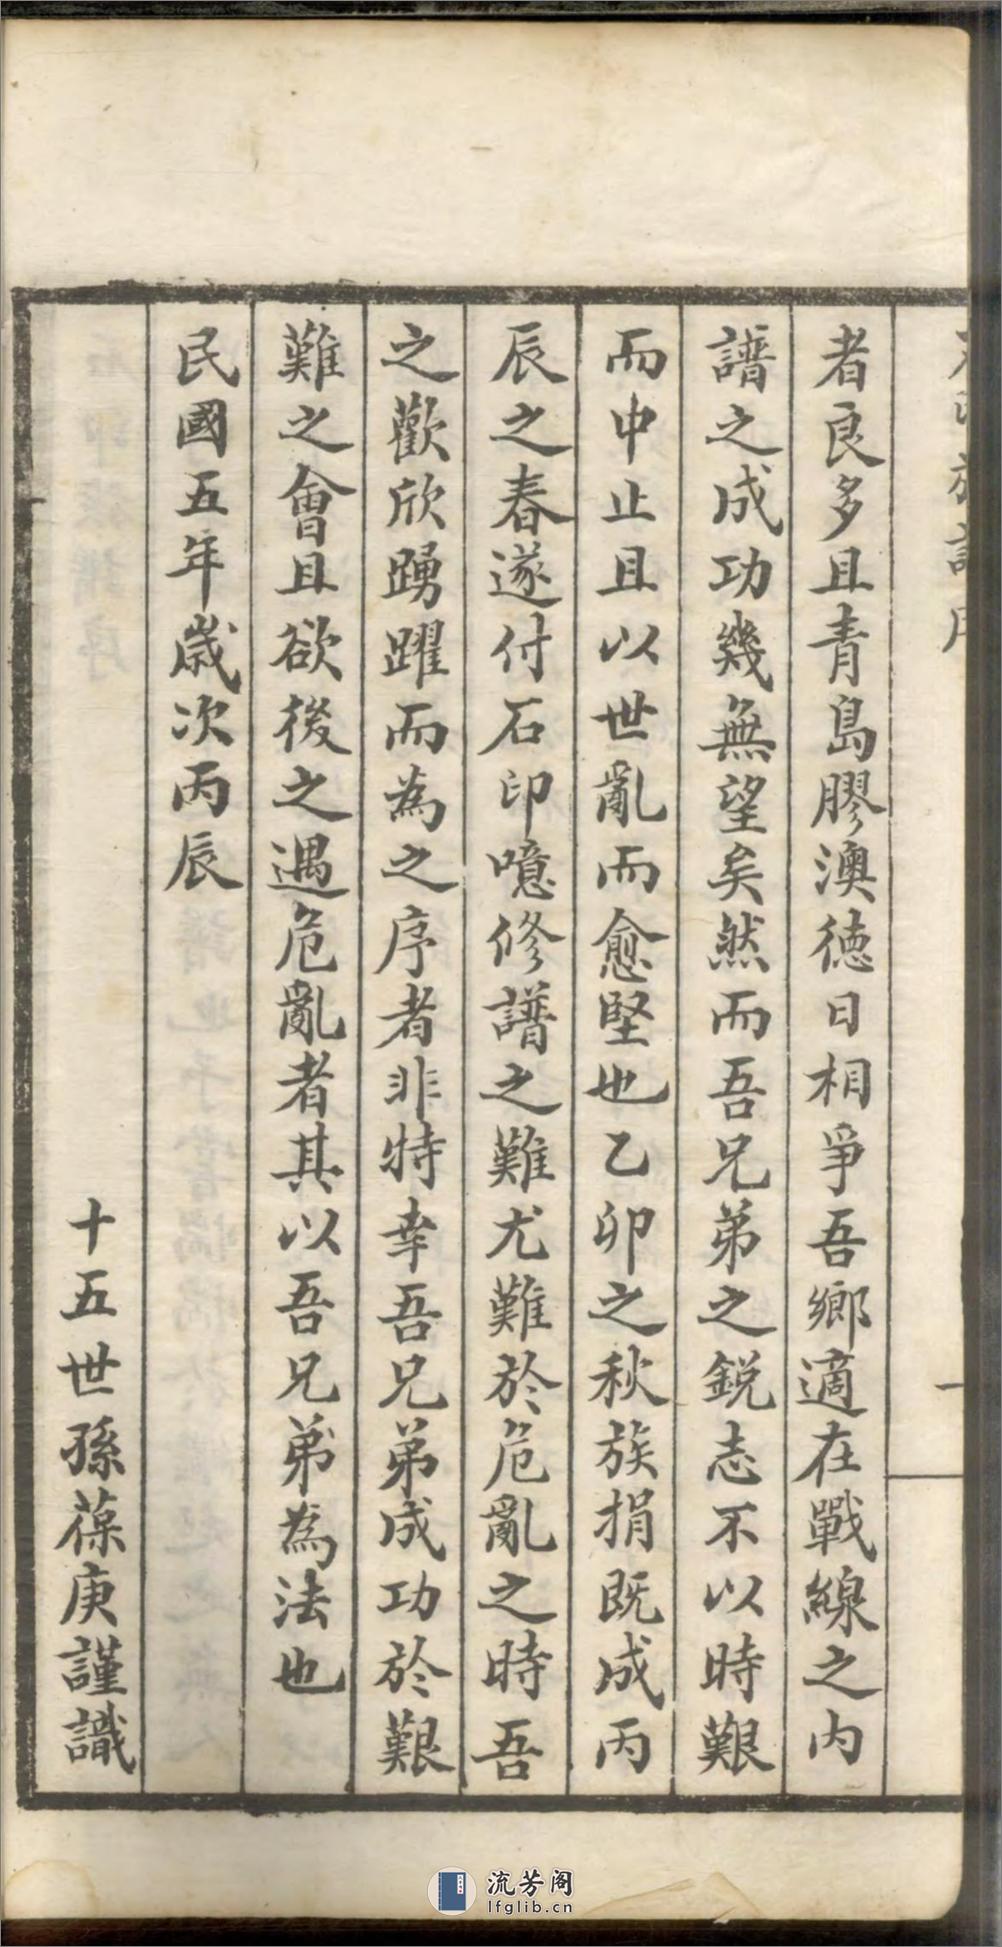 族譜序
一
者良多且青島膠澳德日相爭吾鄉適在戰線之内
譜之成功幾無望矣然而吾兄弟之銳志不以時艱
而中止且以世亂而愈堅也乙卯之秋族捐既成丙
辰之春遂付石印噫修譜之難尤難於危亂之時吾
之歡欣踴躍而為之序者非特幸吾兄弟成功於艱
難之會且欲後之遇危亂者其以吾兄弟為法也
民國五年歲次丙辰
十五世孫葆庚謹識
流芳阁
lfglib.cn